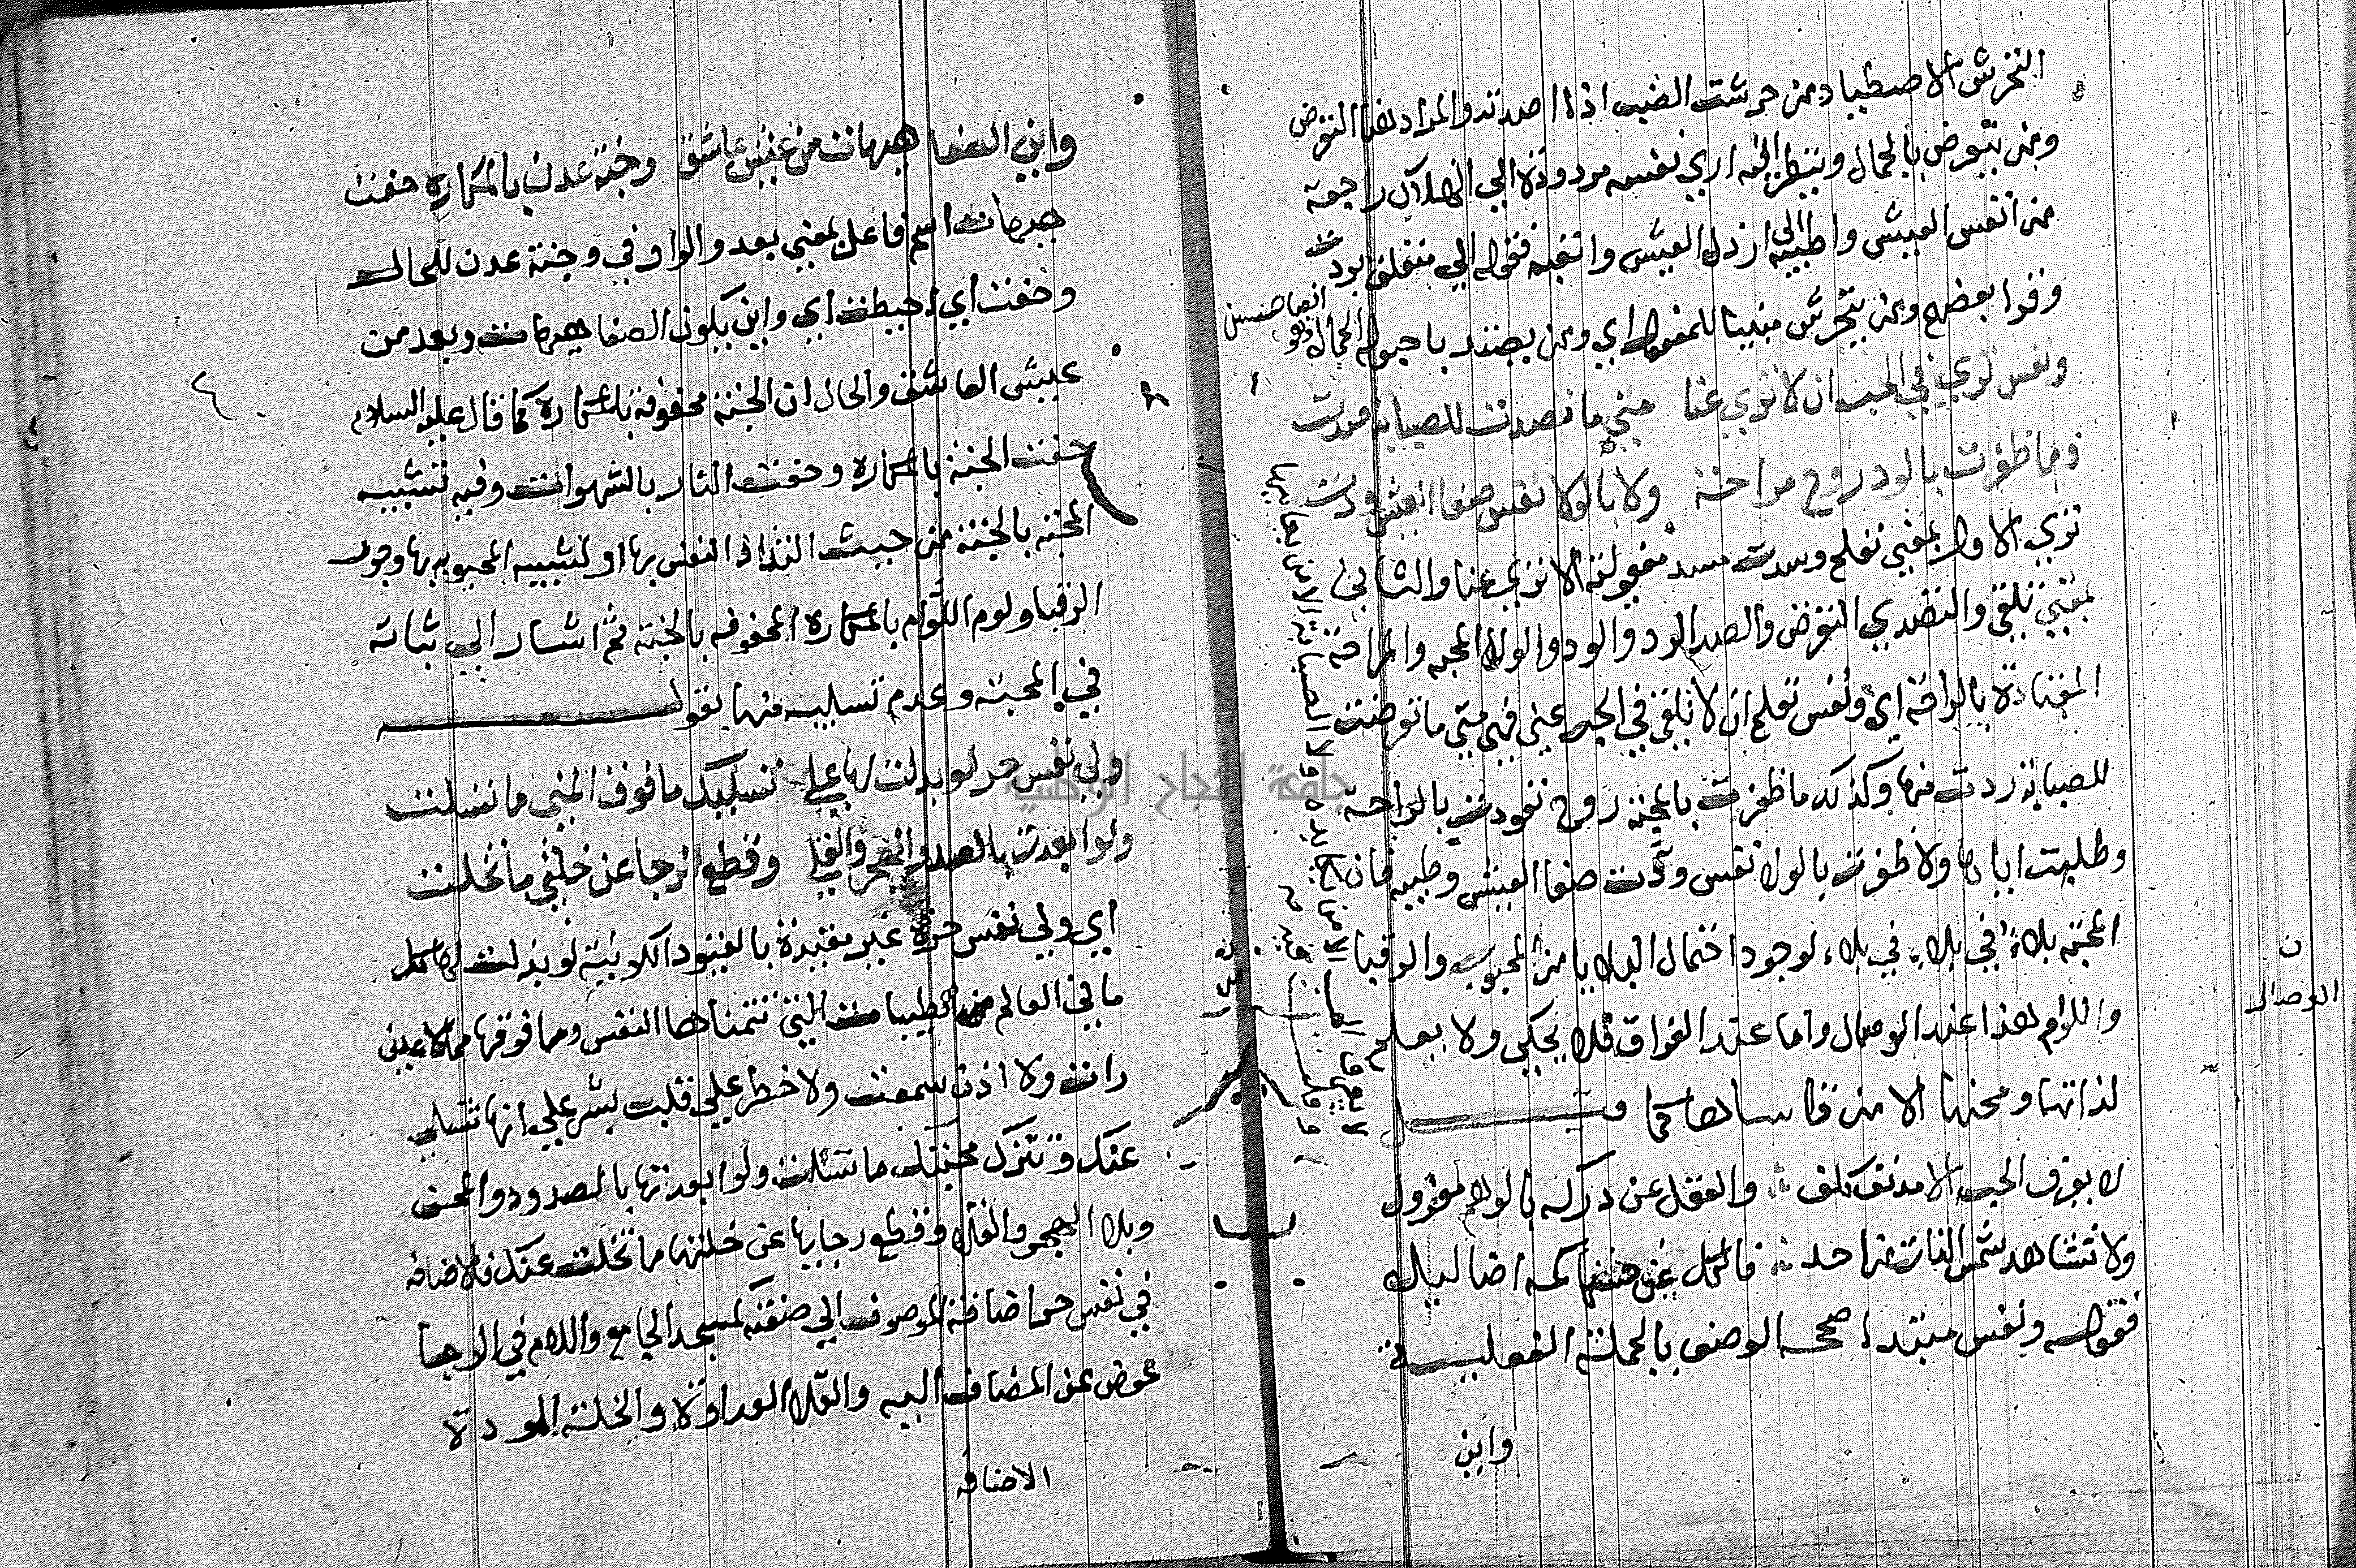 التحرش الاصطياد من حرشت الضب اذا اصدته والمراد هنا التعرض
ومن يتعرض بالجمال وينظر اليه اري نفسه مردودة الي الهلاك راجعة
من انفس العيش واطيبه الي ارذل العيش واتعبه فقوله الي متعلق بردت
وقرا بعضهم ومن يتحرش مبنيا للمفعول اي ومن يصتد باحبولة الجمال
ونفس تري في الحب ان لا تري عنا متي ما تصدت للصبابة صدت
وما ظفرت بالود روح مراحة ولا بالولا نفس صفا العيش ودت
تري الاول بمعني تعلم وسدت مسد مفعولية الا تري عنا والثاني
بمعني تلقي والتصدي التعرض والصد الرد والود والولا المحبه والمراحة
المعتادة بالراحة اي ونفس تعلم ان لا تلقي في الحب عني فهي متي ما تعرضت
للصبابة ردت منها وكذلك ما ظفرت بالمحبة روح تعودت بالراحة
وطلبت اياها ولا ظفرت بالولا نفس ودت صفا العيش وطيبه فان
المحبة بلاء في بلاء في بلاء لوجود احتمال البلايا من المحبوب والرقبا
واللوام هذا عند الوصال واما عند الفراق فلا يحكي ولا يعلم
لذاتها ومحنها الا من قاساها كما قـــــــال
لا يعرف الحب الا مدنف كلف والعقل عن دركه بالوهم معزول
ولا تشاهد شمس الذات من احد فالكل عن كنهها كمه اضاليل
فقوله ونفس مبتدا صححه الوصف بالجملة الفعليـــة
واين
الوصال
واين الصفا هيهات من عيش عاشق وجنة عدن بالمكاره حفت
هيهات اسم فاعل بمعني بعد والواو في وجنة عدن للحال
وحفت اي احيطت اي واين يكون الصفا هيهات وبعد من
عيش العاشق والحال ان الجنة محفوفة بالمكاره كما قال عليه السلام
حفت الجنة بالمكاره وحفت النار بالشهوات وفيه تشبيه
المحبة بالجنة من حيث التذاذ النفس بها او تشبيه المحبوب بها وجور
الرقبا ولوم اللوام بالمكاره المحفوفه بالجنة ثم اشار الي ثباته
في المحبة وعدم تسليه منها بقولـــــــه
ولي نفس حر لو بذلت لها علي تسليك ما فوق المني ما تسلت
ولو ابعدت بالصد والهجر والقلي وقطع الرجا عن خلتي ما تخلت
اي ولي نفس حرة غير مقيدة بالقيود الكونية لو بذلت لها كل
ما في العالم من الطيبات التي تتمناها النفس وما فوقها مما لا عين
رات ولا اذن سمعت ولا خطر علي قلب بشر علي انها تتسلي
عنك وتترك محبتك ما تسلت ولو ابعدتها بالصدود والمحن
وبلا الهجر والقلا وقطع رجايها عن خلتها ما تخلت عنك فالاضافه
في نفس حر اضافة الموصوف الي صفته كمسجد الجامع واللام في الرجا
عوض عن المضاف اليه والقلا العداوة والخلة المودة
الاضافه
جامعة النجاح الوطنية